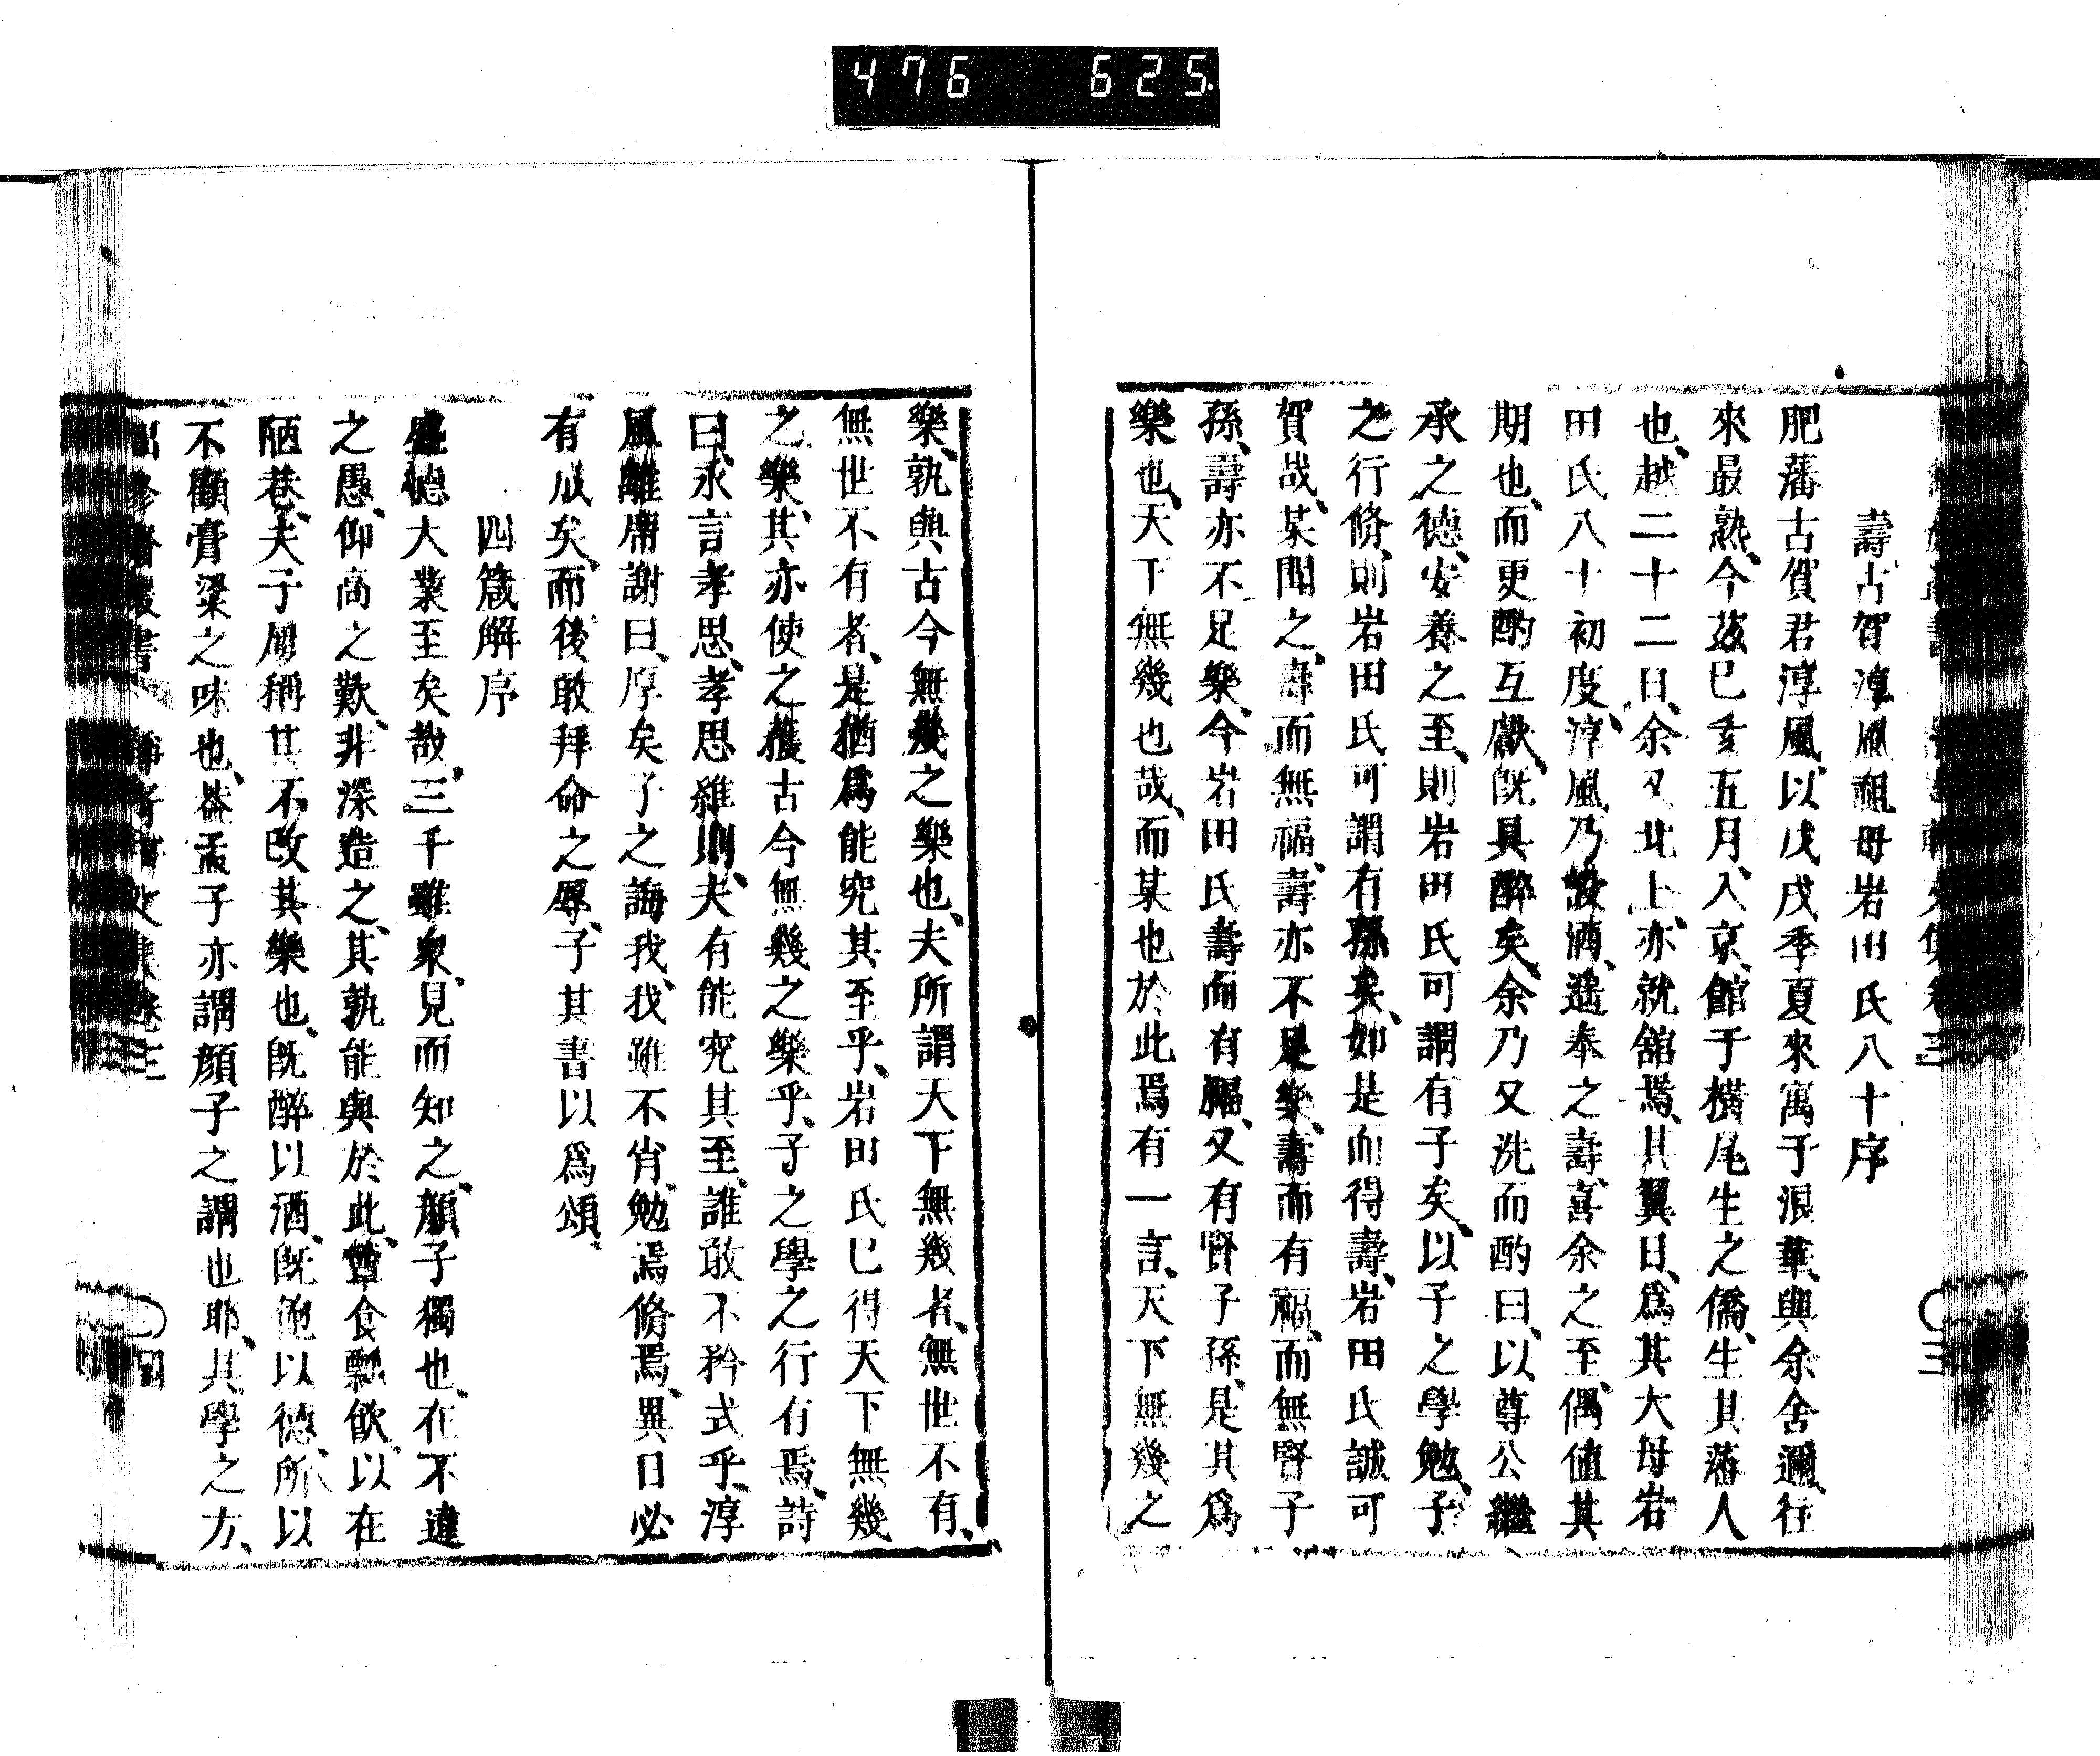 476 625
壽古賀淳風祖母岩田氏八十序
肥藩古賀君淳風、以戊戌季夏來寓于浪華、與余舍邇、往
來最熟、今茲己亥五月、入京、館于橫尾生之僑、生其藩人
也、越二十二日、余又北上、亦就舘焉、其翼日、爲其大母岩
田氏八十初度、淳風乃設酒、遙奉之壽、喜余之至、偶值其
期也、而更酌互獻、旣具醉矣、余乃又洗而酌曰、以尊公繼
承之德、安養之至、則岩田氏可謂有子矣、以子之學勉、子
之行脩、則岩田氏可謂有孫矣、如是而得壽、岩田氏誠可
賀哉、某聞之、壽而無福、壽亦不足樂、壽而有福、而無賢子
孫、壽亦不足樂、今岩田氏壽而有福、又有賢子孫、是其爲
樂也、天下無幾也哉、而某也於此焉有一言、天下無幾之
樂、孰與古今無幾之樂也、夫所謂天下無幾者、無世不有、
無世不有者、是猶爲能究其至乎、岩田氏已得天下無幾
之樂、其亦使之獲古今無幾之樂乎、子之學之行有焉、詩
曰、永言孝思、孝思維則、夫有能究其至、誰敢不矜式乎、淳
風離席謝曰、厚矣子之誨我、我雖不肖、勉焉脩焉、異日必
有成矣、而後敢拜命之辱、子其書以爲頌、
四箴解序
盛德大業至矣哉、三千雖衆、見而知之、顏子獨也、在不違
之愚、仰高之歎、非深造之、其孰能與於此、簞食瓢飮、以在
陋巷、夫子屢稱其不改其樂也、旣醉以酒、旣飽以德、所以
不願膏粱之味也、蓋孟子亦謂顏子之謂也耶、其學之方、